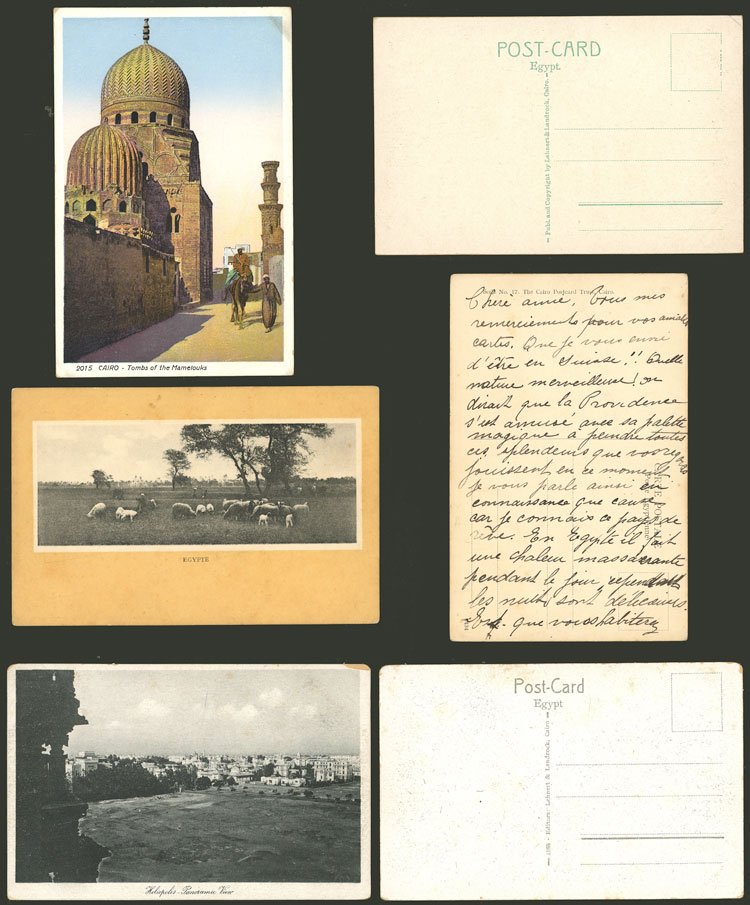 2015 CAIRO - Tombs of the Mamelouks
POST-CARD
Egypt.
Publ. and Copyright by Lehnert & Landrock, Cairo.
Serie No. 17. The Cairo Postcard Trust, Cairo.
Chère amie, Tous mes
remerciements pour vos aimables
cartes. Que je vous envie
d'être en Suisse!! Quelle
nature merveilleuse! on
dirait que la Providence
s'est amusé avec sa palette
magique à peindre toutes
ces splendeurs que vos
jouissent en ce moment
je vous parle ainsi en
connaissance que cause
car je connais ce pays de
rêve. En Egypte il fait
une chaleur massacrante
pendant le jour cependant
les nuits sont délicieuses.
que vous habiterez
CARTE POSTALE
EGYPTE
Heliopolis - Panorama View
Post-Card
Egypt
Editors: Lehnert & Landrock, Cairo